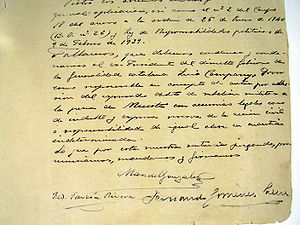 Vistos los artículos
general aplicación, así como el nº 2 del Grupo
18 del anexo a la orden de 25 de Junio de 1940
(B.O. nº 26) y Ley de Responsabilidades políticas de
9 de Febrero de 1939.
Fallamos, que debemos condenar y conde-
namos al ex Presidente del dimitido Gobierno
de la generalidad catalana Luis Companys Jover
como responsable en concepto de autor por adhe-
sión del expresado delito de rebelión militar a
la pena de Muerte con accesorias legales caso
de indulto y expresa reserva de la acción civil
o responsabilidades de igual clase en cuantía
indeterminada.
Lo que por esta nuestra sentencia juzgando, pro-
nunciamos, mandamos y firmamos
Manuel Gonzalez
García Rivera Fernando Giménez